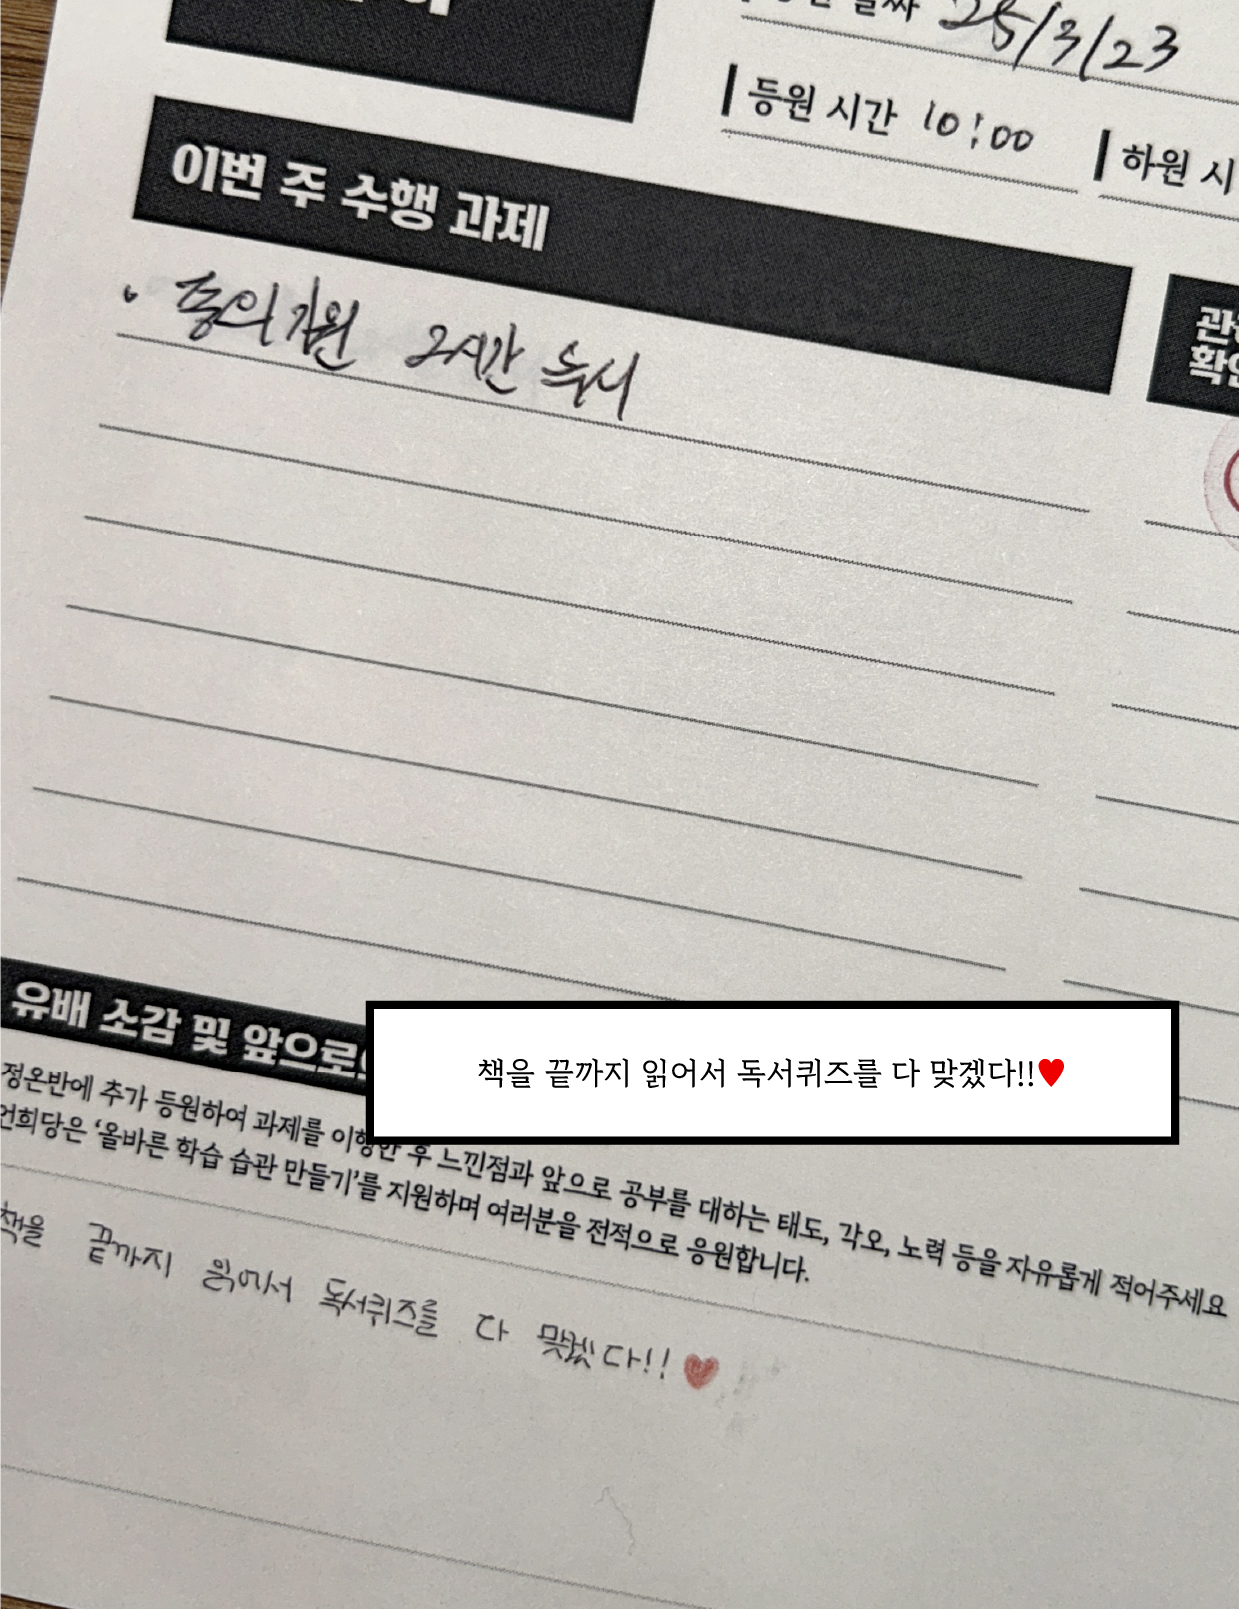 25/3/23
등원 시간 10:00
하원 시
이번 주 수행 과제
• 종의 기원 2시간 독서
유배 소감 및 앞으로
책을 끝까지 읽어서 독서퀴즈를 다 맞겠다!!♥
정온반에 추가 등원하여 과제를 이행한 후 느낀점과 앞으로 공부를 대하는 태도, 각오, 노력 등을 자유롭게 적어주세요
언희당은 '올바른 학습 습관 만들기'를 지원하며 여러분을 전적으로 응원합니다.
책을 끝까지 읽어서 독서퀴즈를 다 맞겠다!!♥